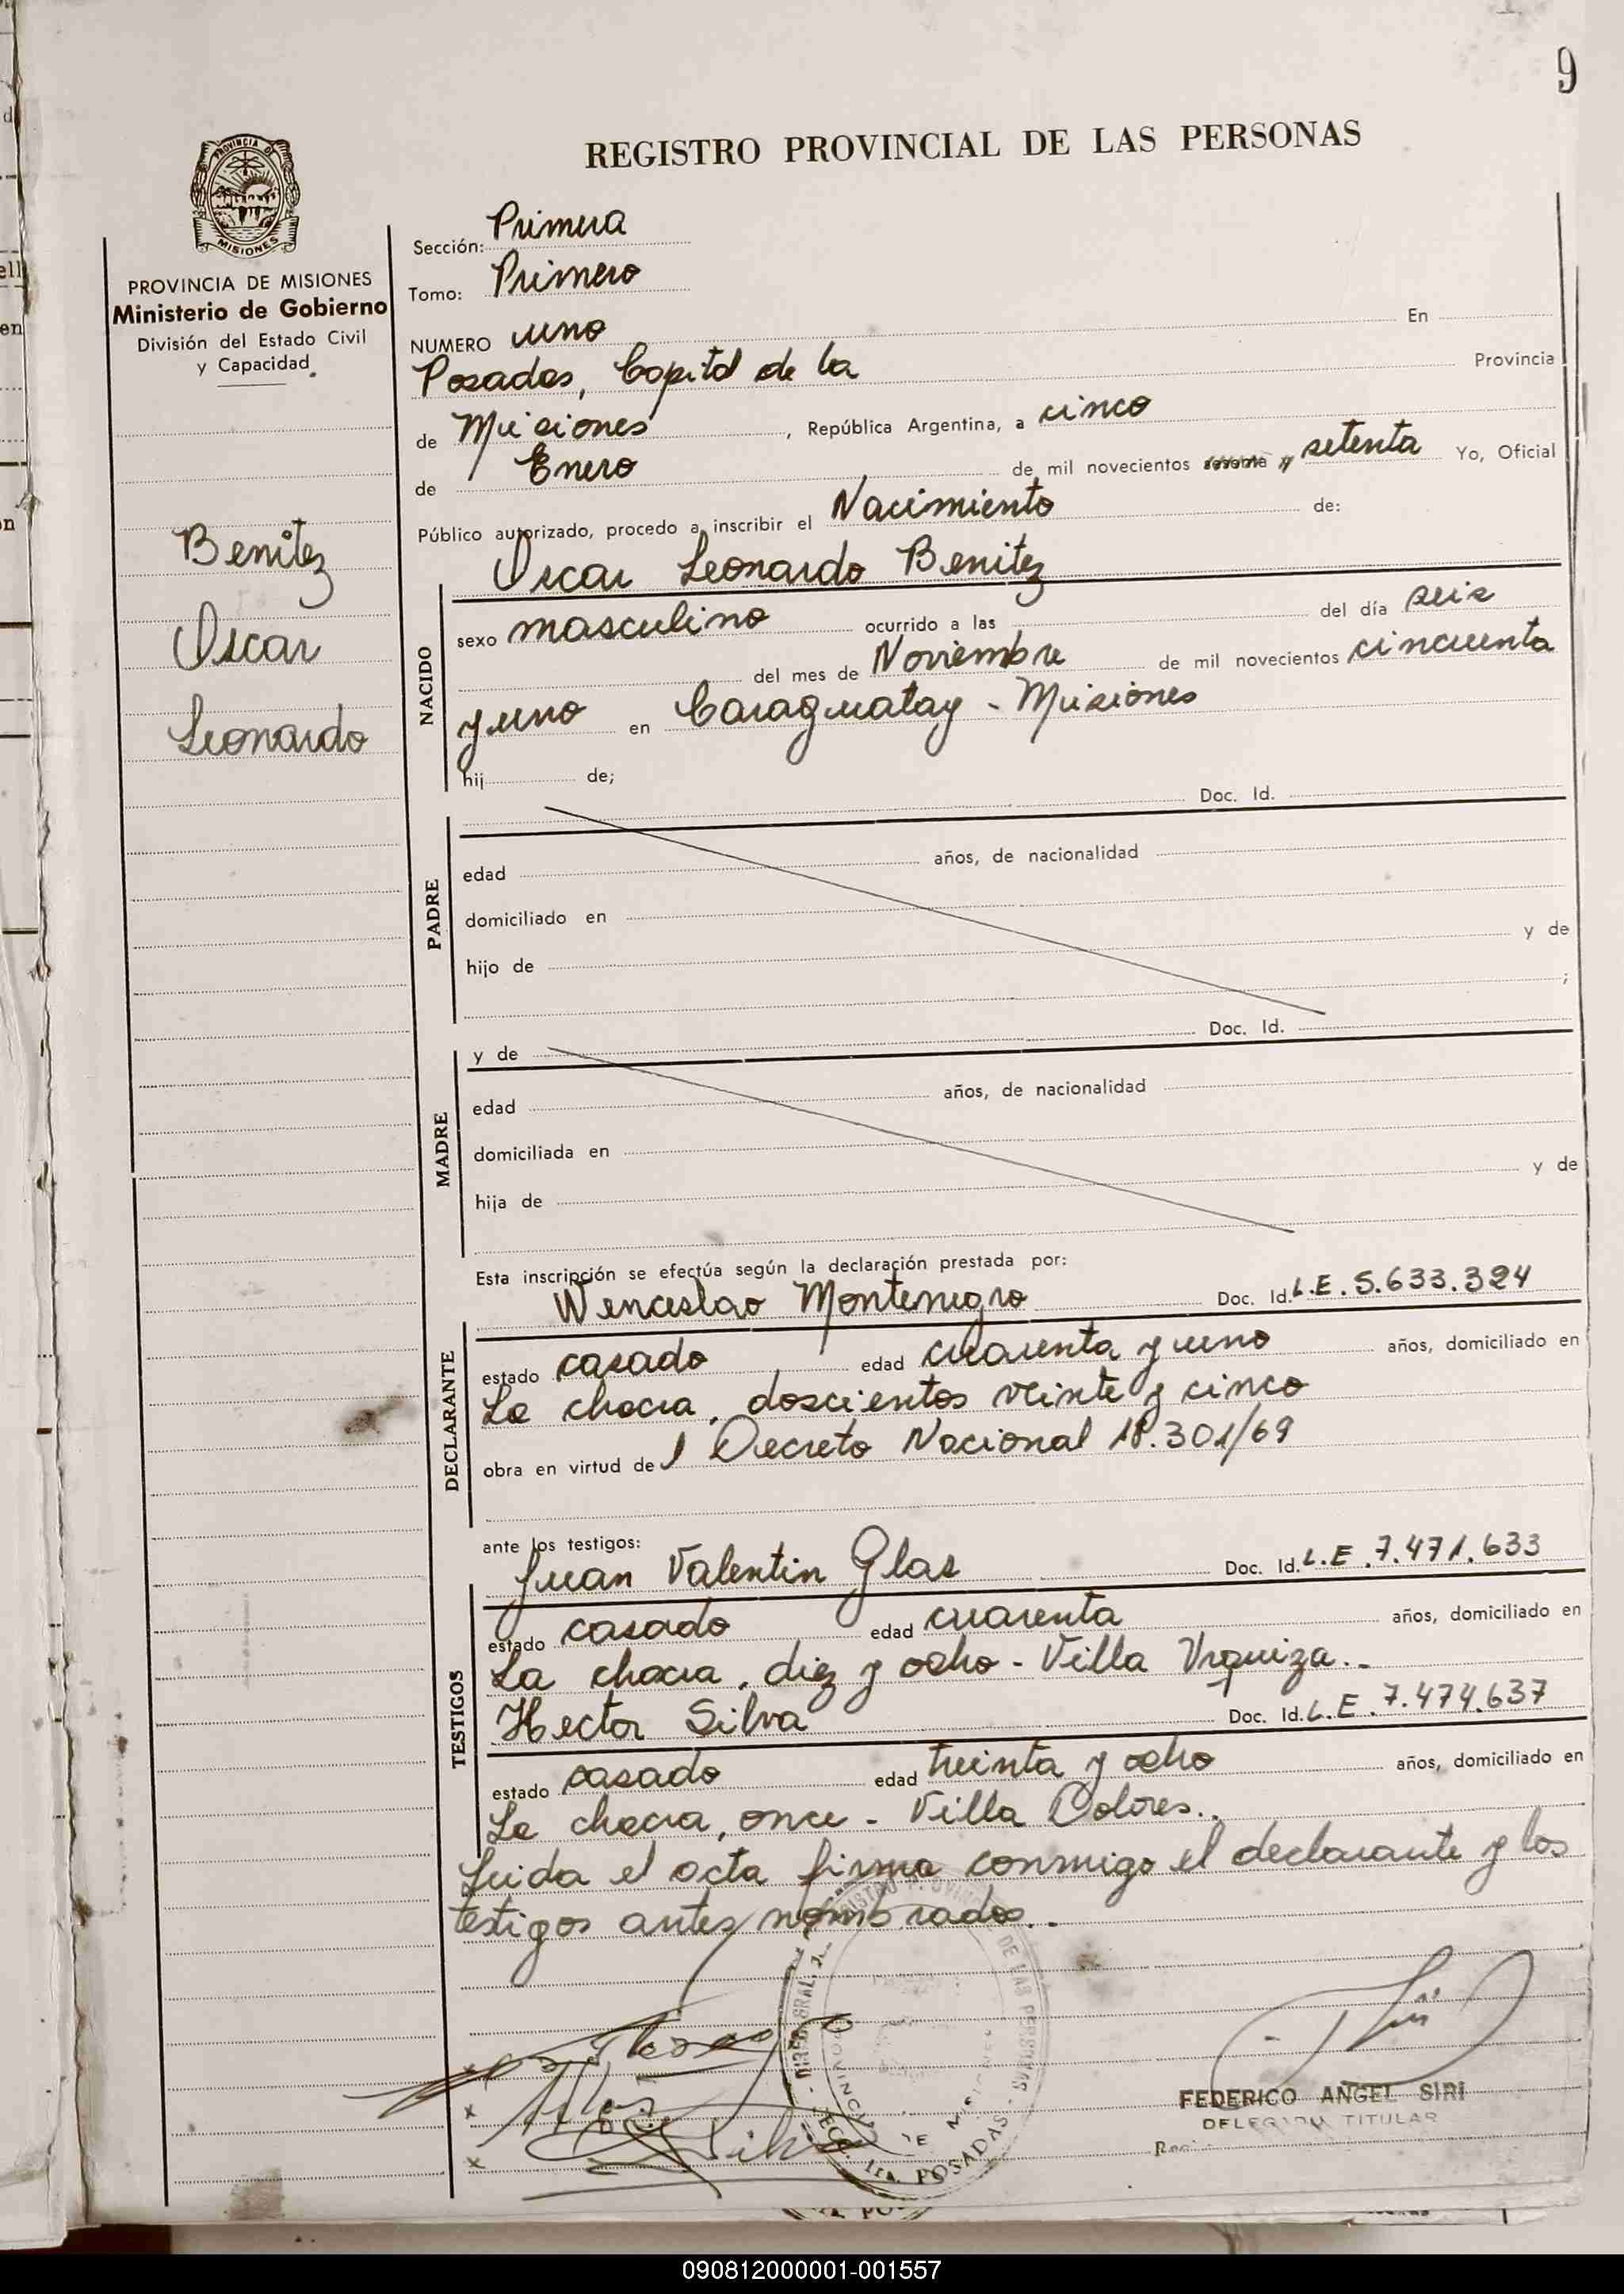 9
REGISTRO PROVINCIAL DE LAS PERSONAS
PROVINCIA DE MISIONES
PROVINCIA DE MISIONES
Ministerio de Gobierno
División del Estado Civil
y Capacidad
Benitez
Oscar
Leonardo
Sección: Primera
Tomo: Primero
NUMERO uno En
Posadas, Capital de la Provincia
de Misiones, República Argentina, a cinco
de Enero de mil novecientos y setenta Yo, Oficial
Público autorizado, procedo a inscribir el Nacimiento de:
Oscar Leonardo Benitez
NACIDO
sexo masculino ocurrido a las del día seis
del mes de Noviembre de mil novecientos cincuenta
y uno en Caraguatay - Misiones
hij de;
Doc. Id.
PADRE
edad años, de nacionalidad
domiciliado en
hijo de y de
;
y de Doc. Id.
MADRE
edad años, de nacionalidad
domiciliada en
hija de y de
Esta inscripción se efectúa según la declaración prestada por:
Wenceslao Montenegro Doc. Id. L.E. 5.633.324
DECLARANTE
estado casado edad cuarenta y uno años, domiciliado en
La chacra, doscientos veinte y cinco
obra en virtud del Decreto Nacional 18.301/69
ante los testigos:
Juan Valentin Glas Doc. Id. L.E. 7.471.633
TESTIGOS
estado casado edad cuarenta años, domiciliado en
La chacra, diez y ocho - Villa Urquiza.-
Hector Silva Doc. Id. L.E. 7.474.637
estado casado edad treinta y ocho años, domiciliado en
La chacra, once - Villa Dolores..
Leida el acta firma conmigo el declarante y los
testigos antes nombrados..
FEDERICO ANGEL SIRI
DELEGADO TITULAR
POSADAS
090812000001-001557